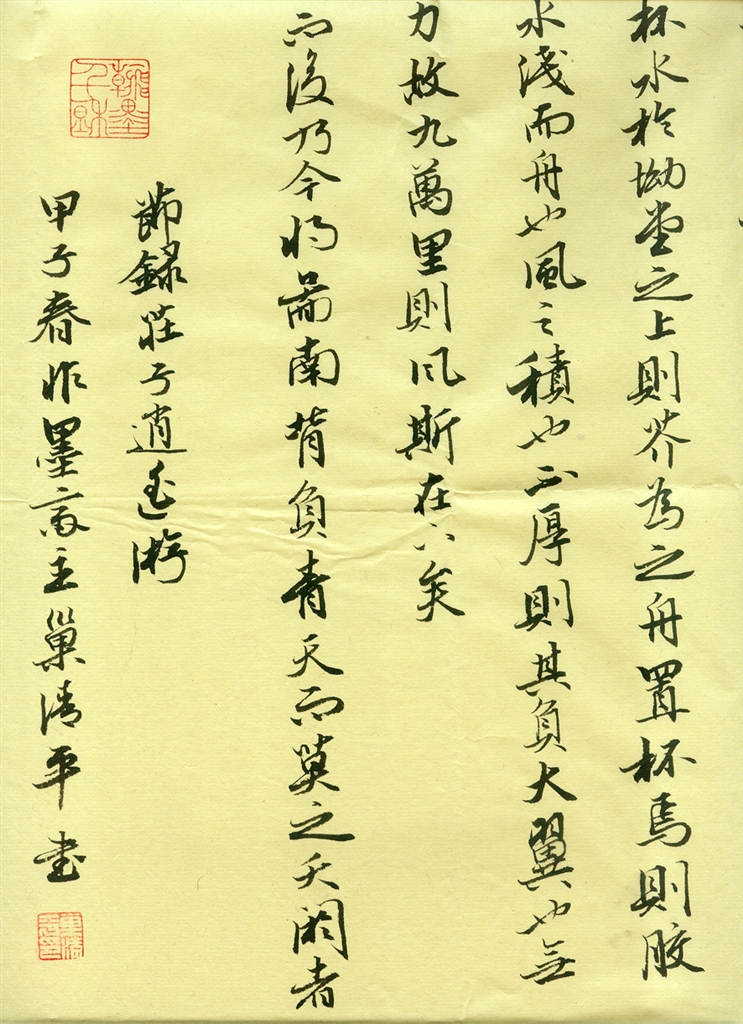 杯水於坳堂之上則芥為之舟置杯焉則膠
水淺而舟也風之積也不厚則其負大翼也無
力故九萬里則風斯在下矣
而後乃今将啚南背負青天而莫之夭閼者
節録莊子逍遙游
甲子春墨齋主巢清平書
翰墨千秋